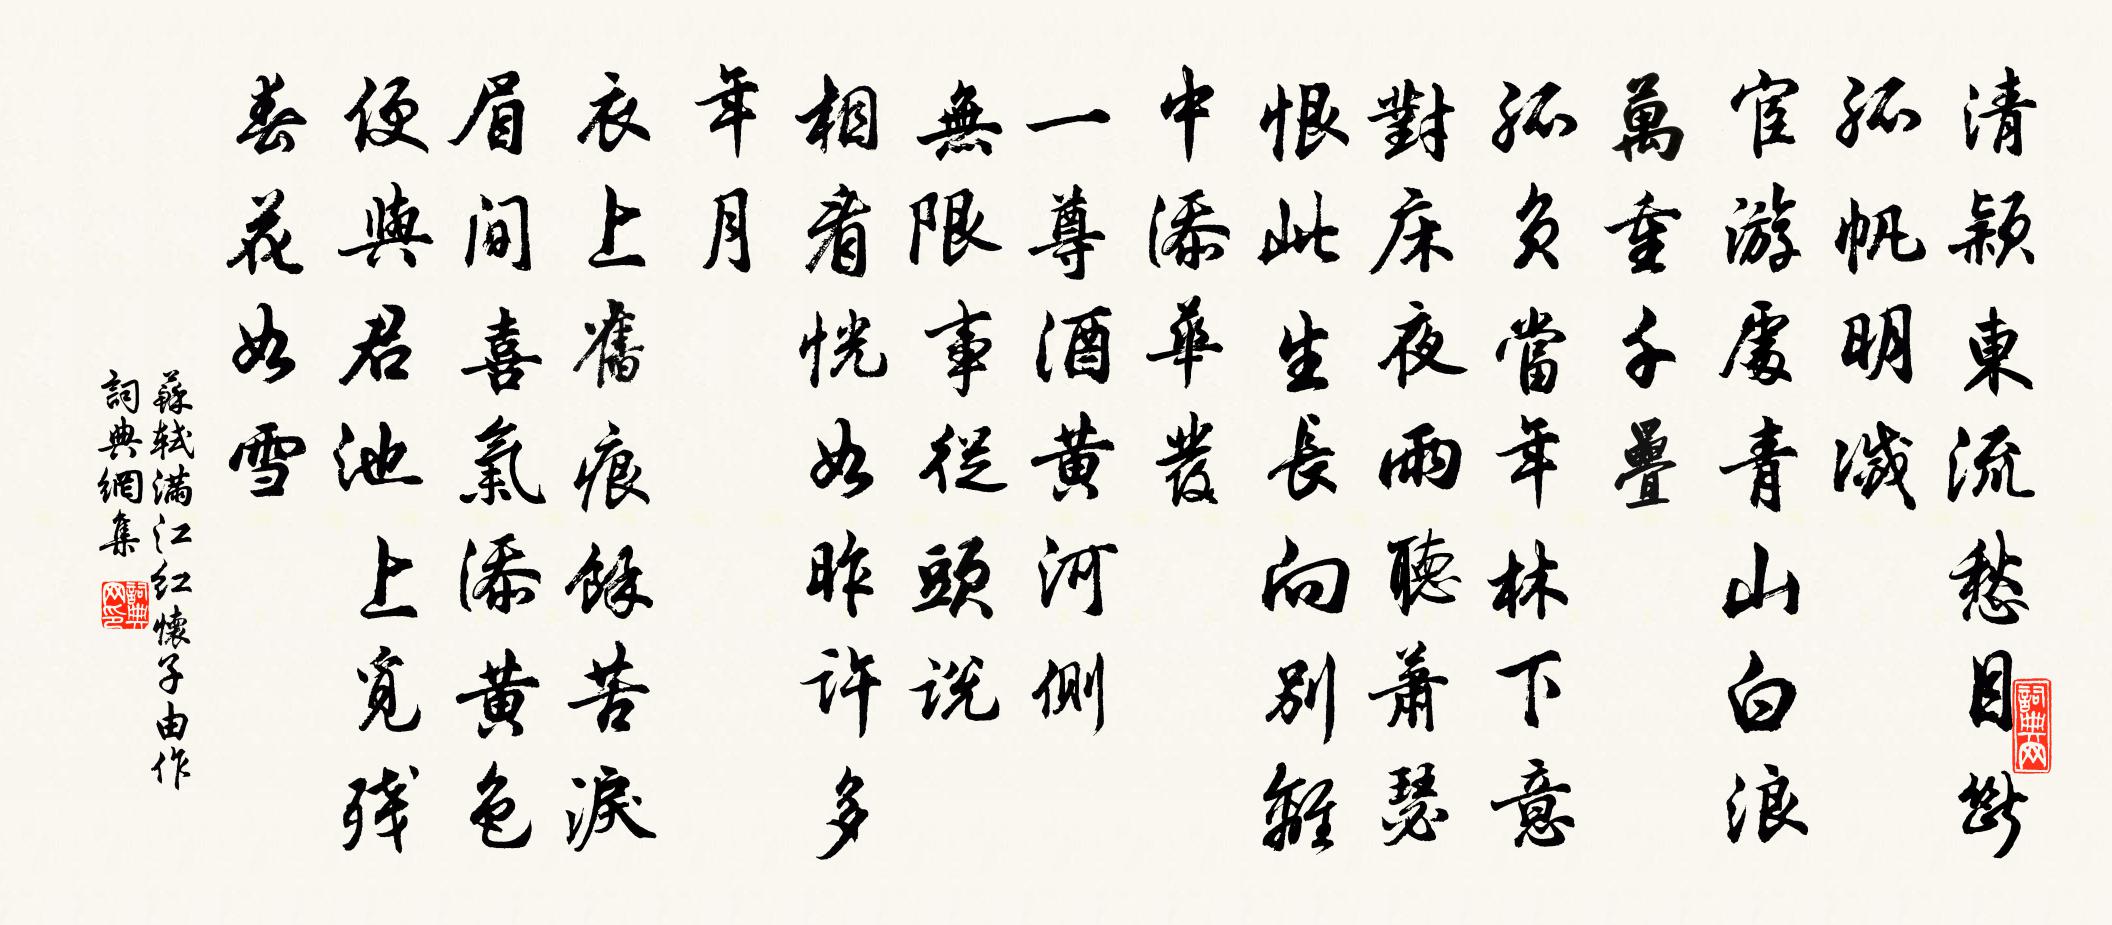 清潁東流愁目斷
孤帆明滅
宦游處青山白浪
萬重千疊
孤負當年林下意
對床夜雨聽蕭瑟
恨此生長向別離
中添華髮
一尊酒黃河側
無限事從頭說
相看恍如昨許多
年月
衣上舊痕餘苦淚
眉間喜氣添黃色
便與君池上覓殘
春花如雪
蘇軾滿江紅懷子由作
詞典網集
詞典网印
詞典网